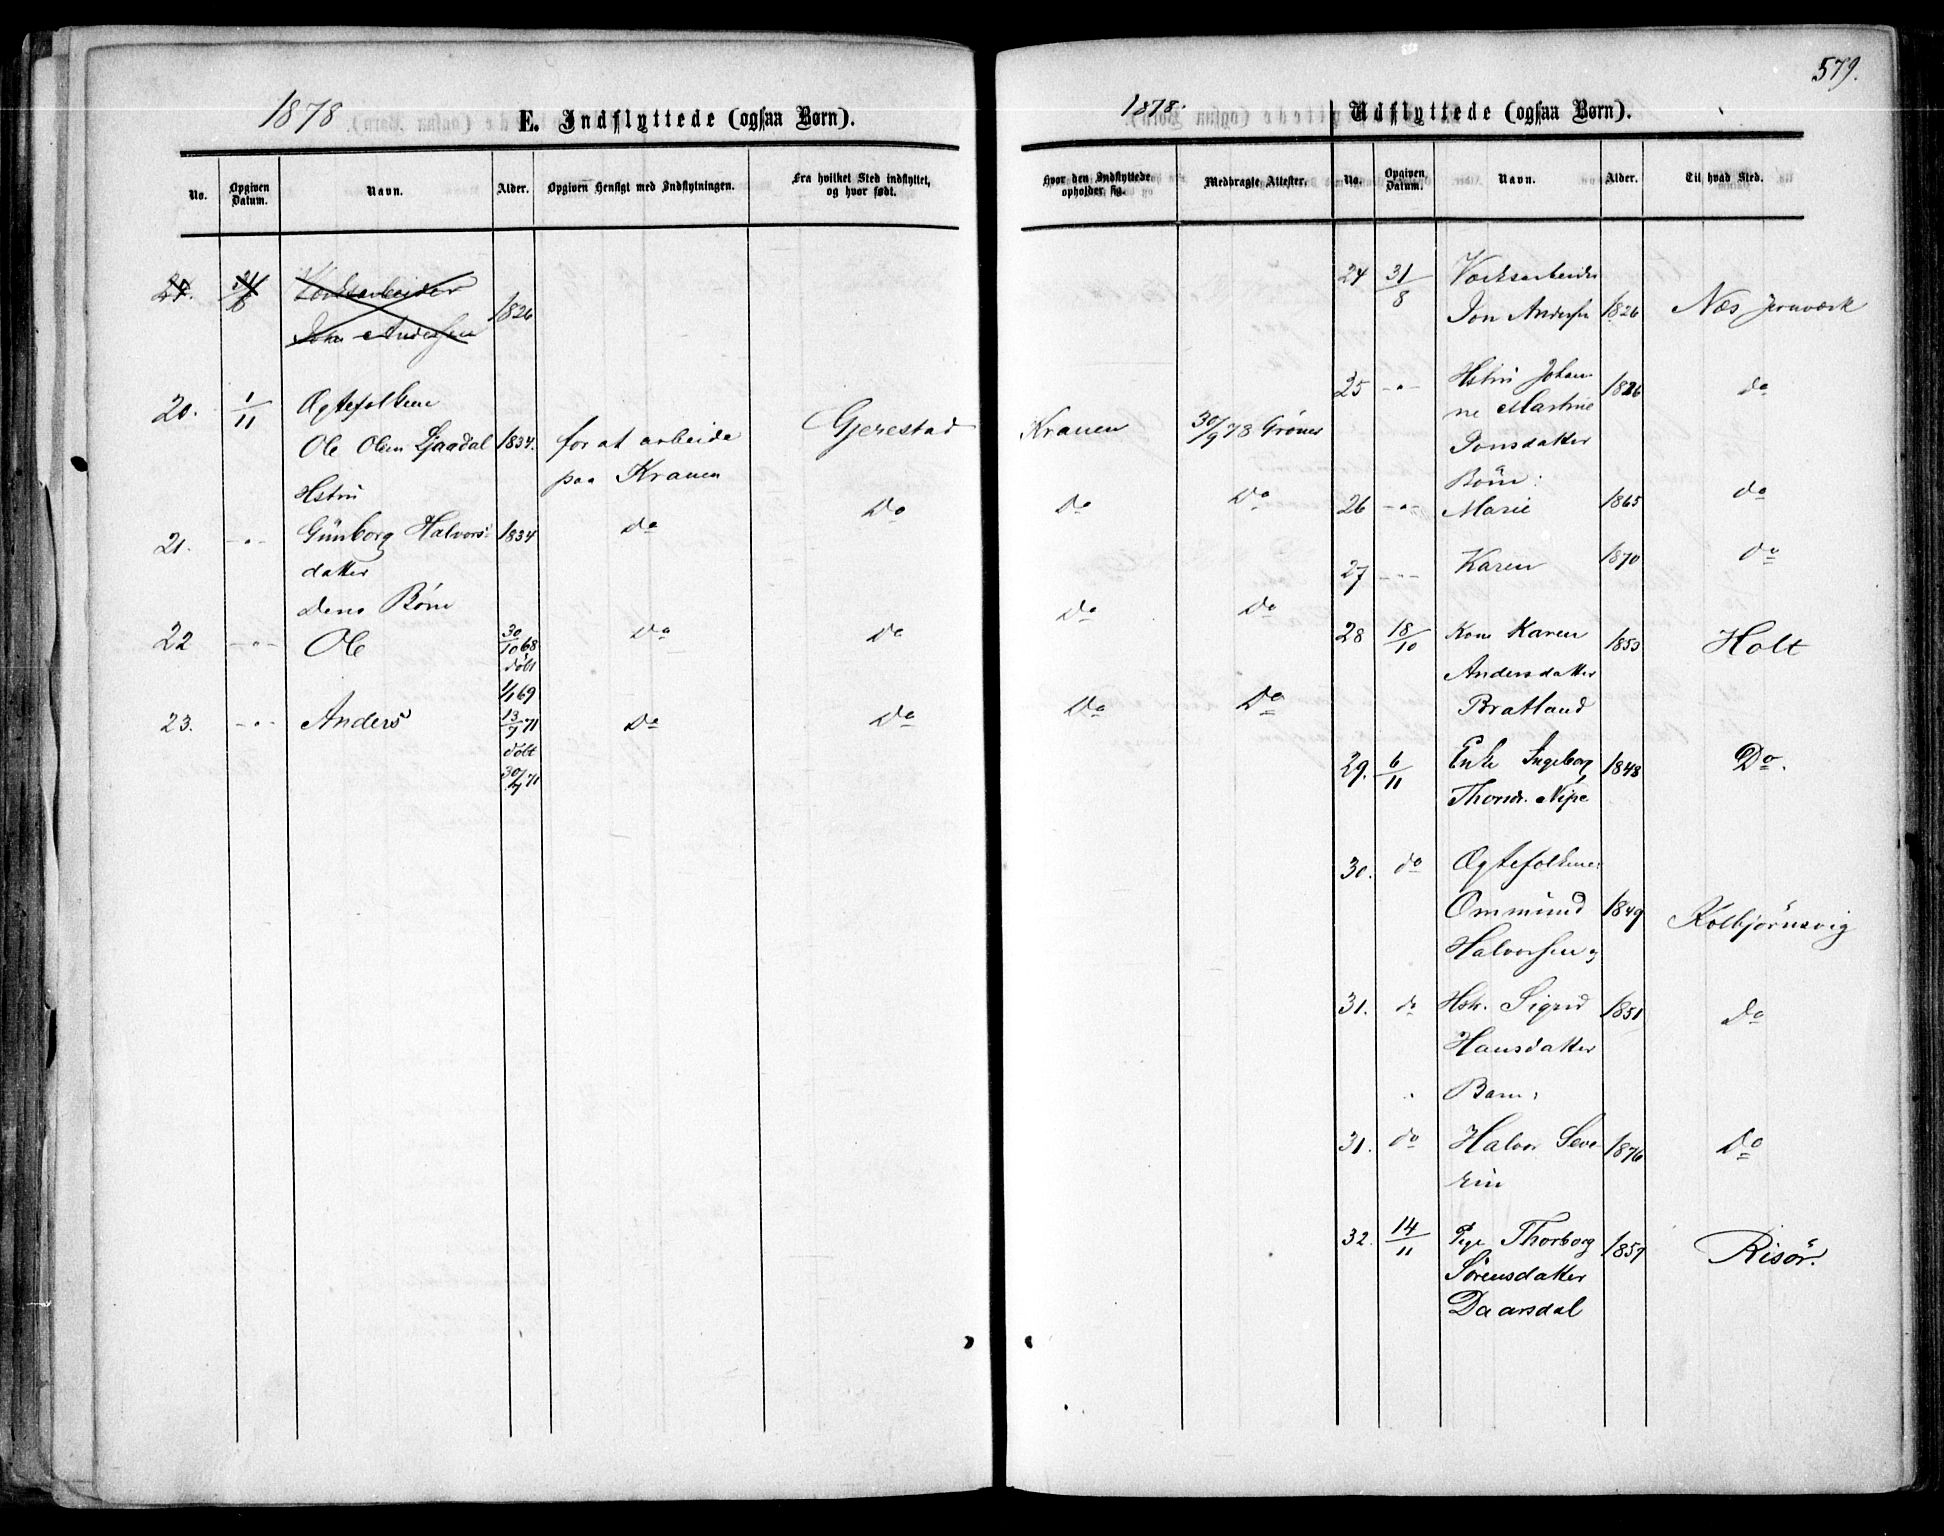 579.
1878
E. Indflyttede (ogsaa Børn).
No.
Opgiven Datum.
Navn.
Alder.
Opgiven Hensigt med Indflytningen.
Fra hvilket Sted indflyttet, og hvor født.
24. 31/8 Værksarbeider
Jon Andersen 1826
20. 1/11 Ægtefolkene
Ole Olsen Ljaadal 1834. for at arbeide Gjerestad Kranen 30/9 78 Grønes
paa Kranen
Hstru
21. -"- Günborg Halvors 1834 Do Do Do Do
datter
Deres Børn
22 -"- Ole 30/10 68 Do Do Do Do
døbt
1/1 69
23. -"- Anders 13/7 71 Do Do Do Do
døbt
30/7 71
1878.
Udflyttede (ogsaa Børn).
Hvor den Indflyttede opholder sig.
Medbragte Attester.
No.
Opgiven Datum.
Navn.
Alder.
Til hvad Sted.
24 31/8 Værksarbeider
Jon Andersen 1826 Næs Jernværk
25 -"- Hstru Johan 1826 do
ne Martine
Jonsdatter
Børn:
26 -"- Marie 1865 do
27 -"- Karen 1870 do
28 18/10 Kone Karen 1853 Holt
Andersdatter
Bratland
29. 6/11 Enke Ingeborg 1848 Do.
Thorsdr. Nipe
30. do Ægtefolkene:
Ommund 1849 Kolbjørnsvig
Halvorsen og
31. do Hstr. Sigrid 1851 Do
Hansdatter
" Barn:
31. do Halvor Seve 1876 Do
rin
32. 14/11 Pige Thorborg 1857 Risør.
Sørensdatter
Daarsdal